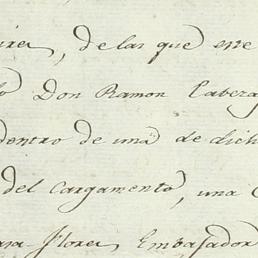 , de las que ese
Don Ramon Cabeza
dentro de una de dich
del cargamento, una
ara-Flores, Embajador